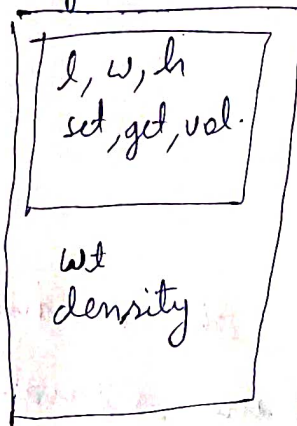 l, w, h
set, get, vol.
wt
density